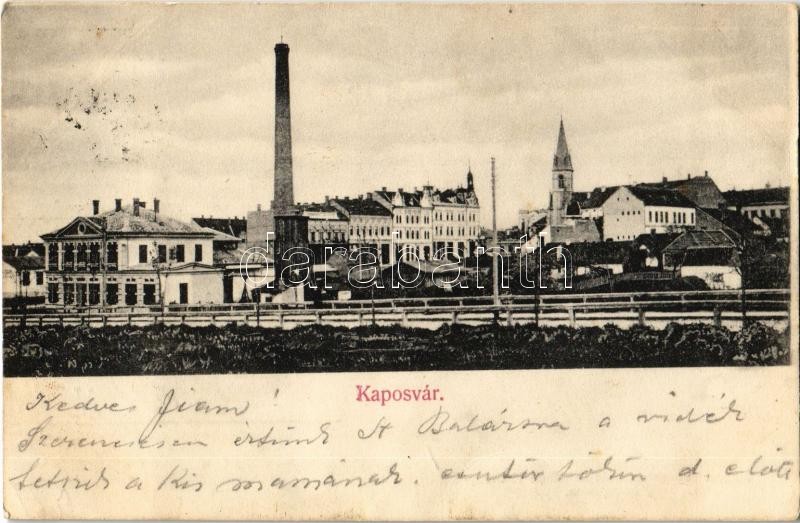 darabanth
Kaposvár.
Kedves Fiam!
Szerencsésen értünk St Balázsra a vidék
tetszik a Kis mamának. d. előtt